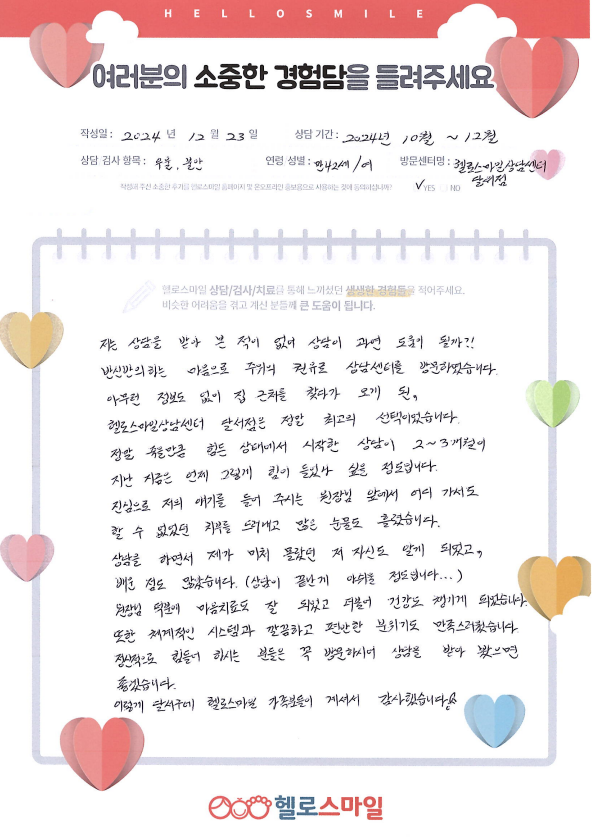 HELLOSMILE
여러분의 소중한 경험담을 들려주세요
작성일 : 2024 년 12 월 23 일 상담 기간 : 2024년 10월 ~ 12월
상담 검사 항목 : 우울, 불안 연령 성별 : 만42세 / 여 방문센터명 : 헬로스마일상담센터
달서점
작성해 주신 소중한 수기를 헬로스마일 홈페이지 및 온오프라인 홍보용으로 사용하는 것에 동의하십니까? ✓YES NO
헬로스마일 상담/검사/치료를 통해 느끼셨던 생생한 경험들을 적어주세요.
비슷한 어려움을 겪고 계신 분들께 큰 도움이 됩니다.
저는 상담을 받아 본 적이 없어 상담이 과연 도움이 될까?!
반신반의하는 마음으로 주위의 권유로 상담센터를 방문하였습니다.
아무런 정보도 없이 집 근처를 찾다가 오게 된,
헬로스마일상담센터 달서점은 정말 최고의 선택이었습니다.
정말 죽을만큼 힘든 상태에서 시작한 상담이 2~3개월이
지난 지금은 언제 그렇게 힘이 들었나 싶을 정도입니다.
진심으로 저의 얘기를 들어 주시는 원장님 앞에서 어디 가서도
할 수 없었던 치부를 드러내고 많은 눈물도 흘렸습니다.
상담을 하면서 제가 미처 몰랐던 저 자신도 알게 되었고,
배운 점도 많았습니다. (상담이 끝난게 아쉬울 정도입니다...)
원장님 덕분에 마음치료도 잘 되었고 더불어 건강도 챙기게 되었습니다.
또한 체계적인 시스템과 깔끔하고 편안한 분위기도 만족스러웠습니다.
정신적으로 힘들어 하시는 분들은 꼭 방문하시어 상담을 받아 봤으면
좋겠습니다.
이렇게 달서구에 헬로스마일 가족분들이 계셔서 감사했습니다
헬로스마일